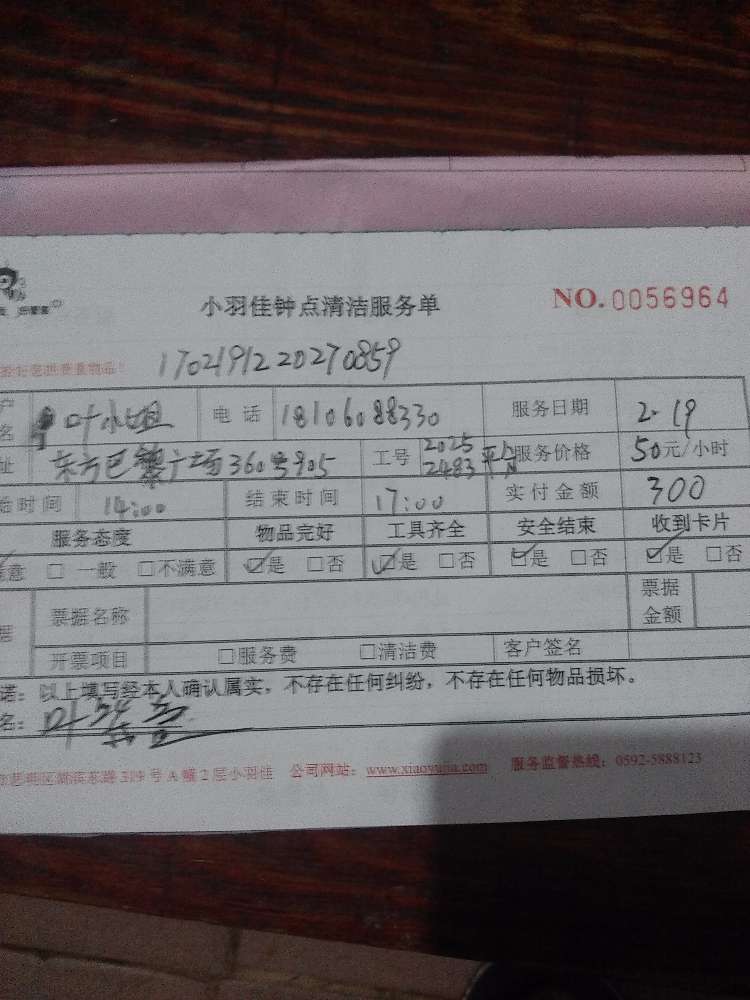 小羽佳钟点清洁服务单 NO.0056964
1702191220270859
名 叶小姐 电话 18106088330 服务日期 2.19
址 东方巴黎广场360号905 工号 2025 2483 服务价格 50元/小时
时间 14:00 结束时间 17:00 实付金额 300
服务态度 物品完好 工具齐全 安全结束 收到卡片
意 □ 一般 □不满意 ☑是 □否 ☑是 □否 ☑是 □否 ☑是 □否
票据名称 票据金额
开票项目 □服务费 □清洁费 客户签名
诺:以上填写经本人确认属实,不存在任何纠纷,不存在任何物品损坏。
名:叶
号A幢2层小羽佳 公司网站:www.xiaoyujia.com 服务监督热线:0592-5888123